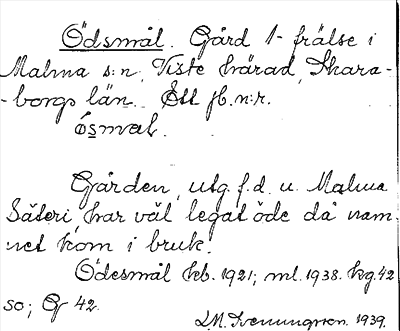 Ödsmål. Gård 1 frälse i
Malma s:n, Viste härad, Skara-
-borgs län. Ett jb.n:r.
ósmal.
Gården, utg. f.d. u. Malma
Säteri, har väl legat öde då nam-
net kom i bruk.
Ödesmål kb. 1921; ml. 1938. kg. 42
so; Gf 42.
1939.